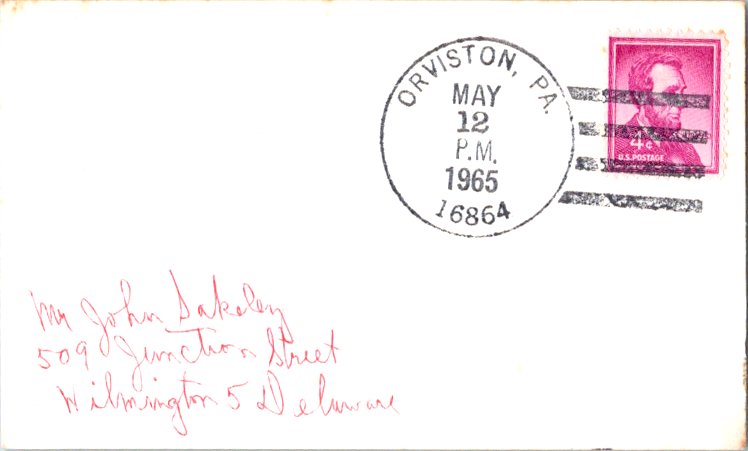 ORVISTON, PA.
MAY
12
P.M.
1965
16864
4¢
U.S. POSTAGE
Mr John Sakeley
509 Junction Street
Wilmington 5 Delaware